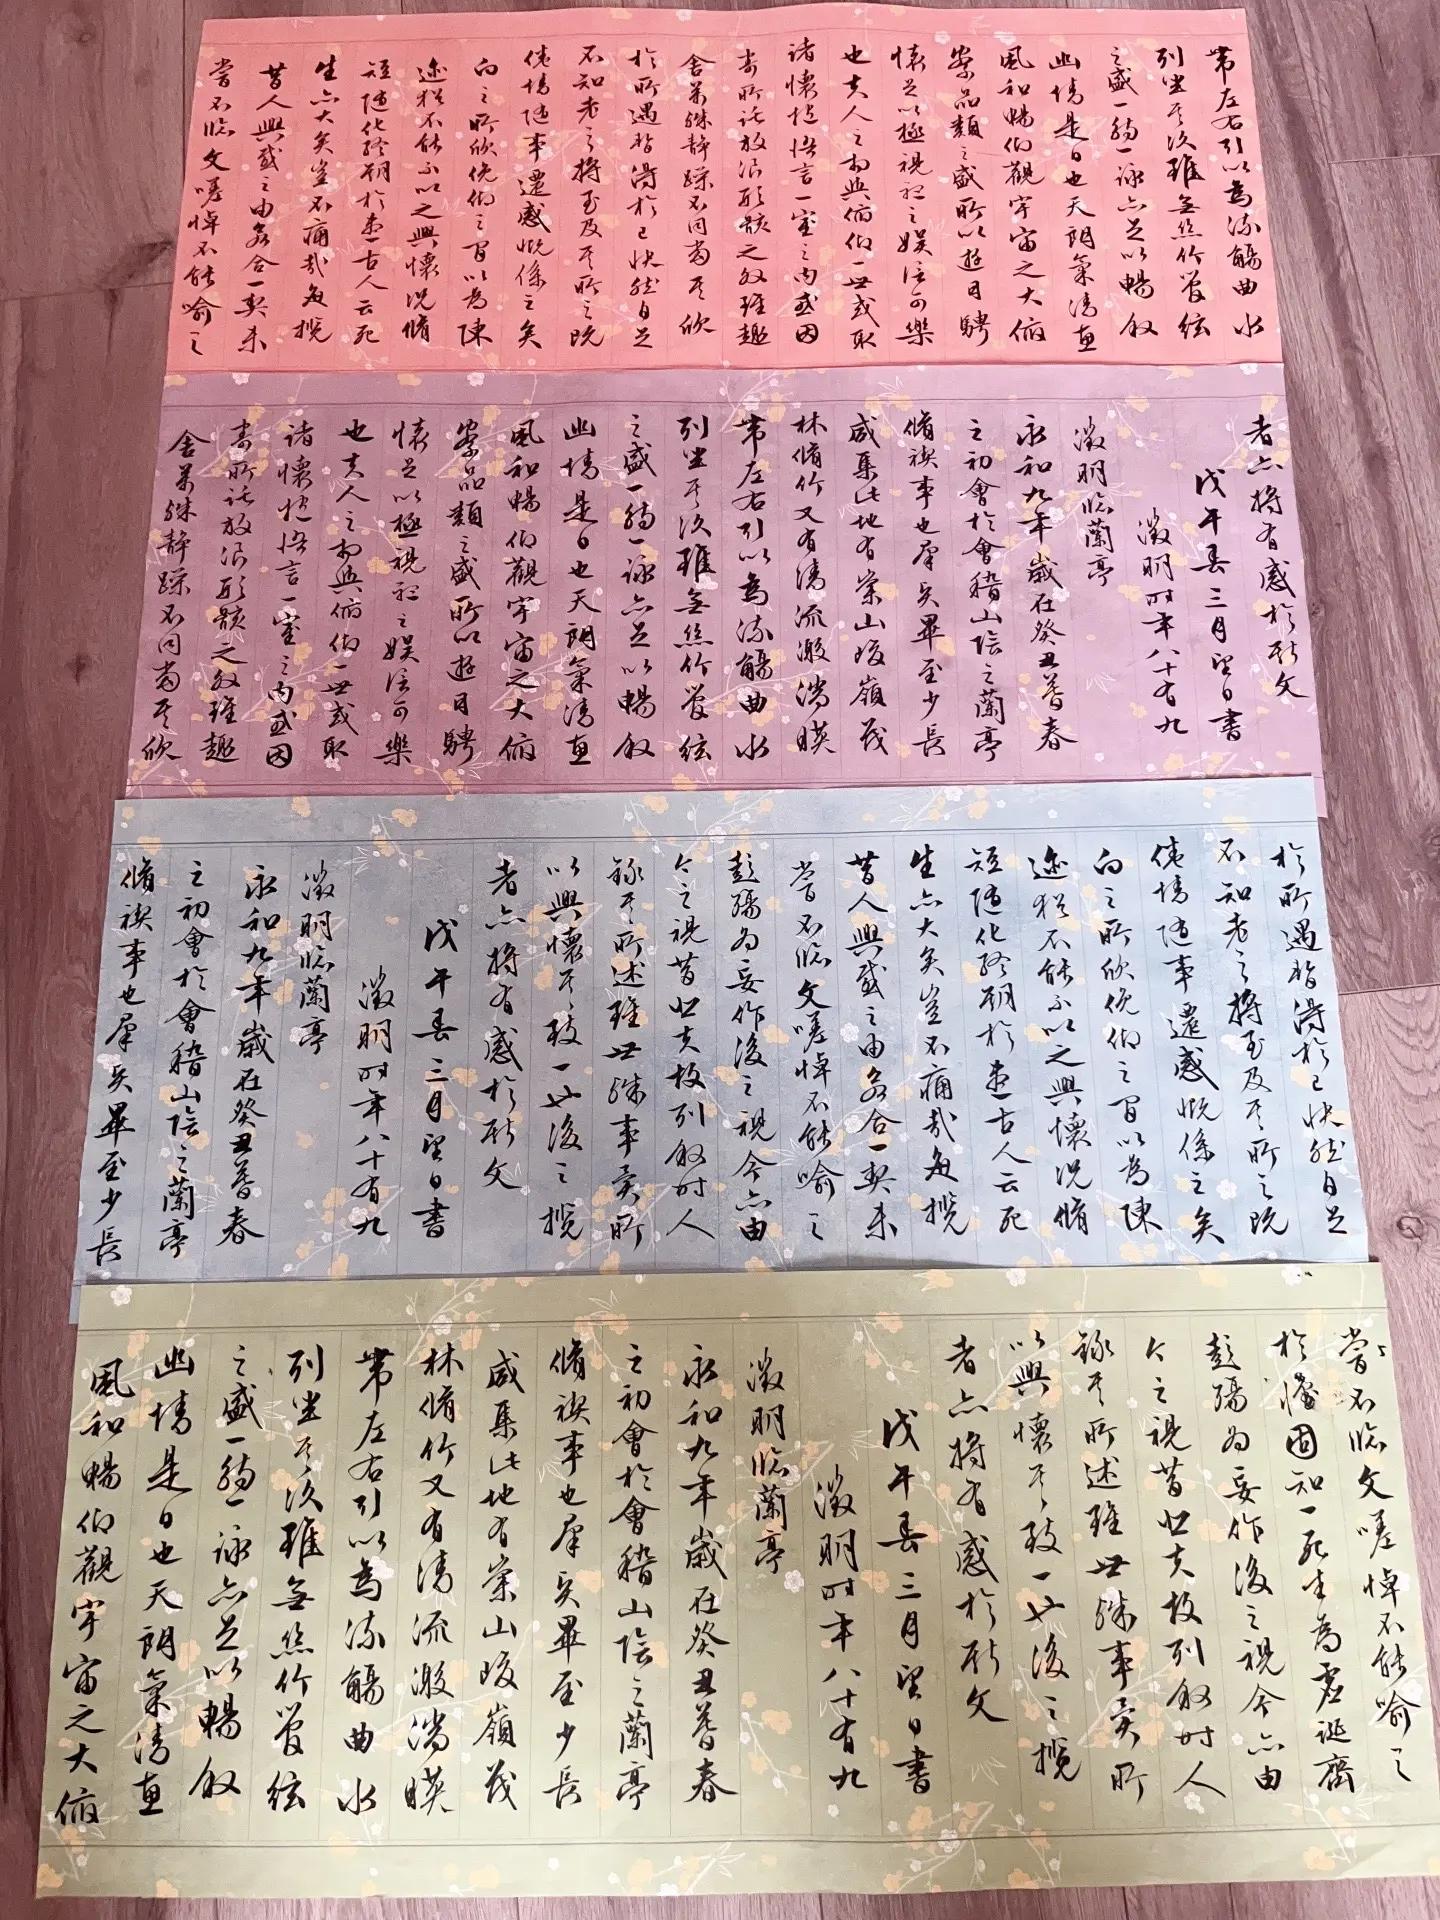 帶左右引以為流觴曲水
列坐其次雖無絲竹管絃
之盛一觴一詠亦足以暢敘
幽情是日也天朗氣清惠
風和暢仰觀宇宙之大俯
察品類之盛所以遊目騁
懷足以極視聽之娛信可樂
也夫人之相與俯仰一世或取
諸懷抱悟言一室之內或因
寄所託放浪形骸之外雖趣
舍萬殊靜躁不同當其欣
於所遇暫得於己快然自足
不知老之將至及其所之既
倦情隨事遷感慨係之矣
向之所欣俛仰之間以為陳
迹猶不能不以之興懷況脩
短隨化終期於盡古人云死
生亦大矣豈不痛哉每攬
昔人興感之由若合一契未
嘗不臨文嗟悼不能喻之
者亦將有感於斯文
戊午春三月望日書
徵明時年八十有九
徵明臨蘭亭
永和九年歲在癸丑暮春
之初會於會稽山陰之蘭亭
脩禊事也群賢畢至少長
咸集此地有崇山峻嶺茂
林脩竹又有清流激湍暎
帶左右引以為流觴曲水
列坐其次雖無絲竹管絃
之盛一觴一詠亦足以暢敘
幽情是日也天朗氣清惠
風和暢仰觀宇宙之大俯
察品類之盛所以遊目騁
懷足以極視聽之娛信可樂
也夫人之相與俯仰一世或取
諸懷抱悟言一室之內或因
寄所託放浪形骸之外雖趣
舍萬殊靜躁不同當其欣
於所遇暫得於己快然自足
不知老之將至及其所之既
倦情隨事遷感慨係之矣
向之所欣俛仰之間以為陳
迹猶不能不以之興懷況脩
短隨化終期於盡古人云死
生亦大矣豈不痛哉每攬
昔人興感之由若合一契未
嘗不臨文嗟悼不能喻之
彭殤為妄作後之視今亦由
今之視昔悲夫故列敘時人
錄其所述雖世殊事異所
以興懷其致一也後之攬
者亦將有感於斯文
戊午春三月望日書
徵明時年八十有九
徵明臨蘭亭
永和九年歲在癸丑暮春
之初會於會稽山陰之蘭亭
脩禊事也群賢畢至少長
嘗不臨文嗟悼不能喻之
於懷固知一死生為虛誕齊
彭殤為妄作後之視今亦由
今之視昔悲夫故列敘時人
錄其所述雖世殊事異所
以興懷其致一也後之攬
者亦將有感於斯文
戊午春三月望日書
徵明時年八十有九
徵明臨蘭亭
永和九年歲在癸丑暮春
之初會於會稽山陰之蘭亭
脩禊事也群賢畢至少長
咸集此地有崇山峻嶺茂
林脩竹又有清流激湍暎
帶左右引以為流觴曲水
列坐其次雖無絲竹管絃
之盛一觴一詠亦足以暢敘
幽情是日也天朗氣清惠
風和暢仰觀宇宙之大俯